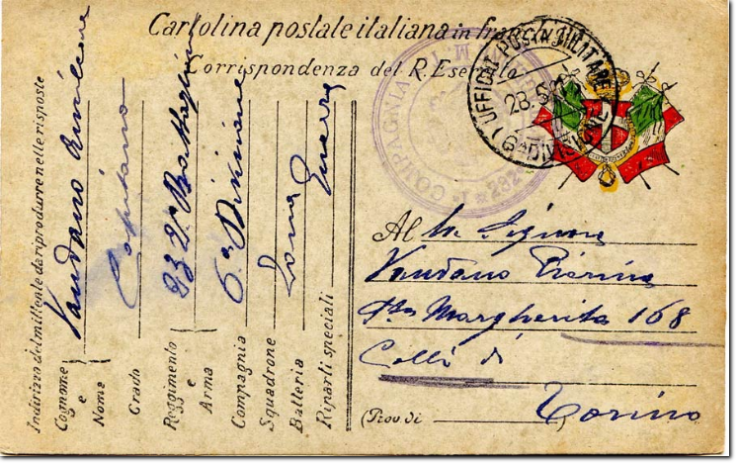 Cartolina postale italiana in fra
Corrispondenza del R. Esercito
UFFICIO POSTA MILITARE
28. S
6ª DIVISIONE
COMPAGNIA
282
Indirizzo del mittente da riprodurre nelle risposte
Cognome e Nome Vandano
Grado Capitano
Reggimento e Arma 232° Battaglion
Compagnia 6ª Divisione
Squadrone
Batteria Zona
Riparti speciali Guerra
Al la Signora
Vandano Pierina
Margherita 168
Colli di
(Prov di ) Torino